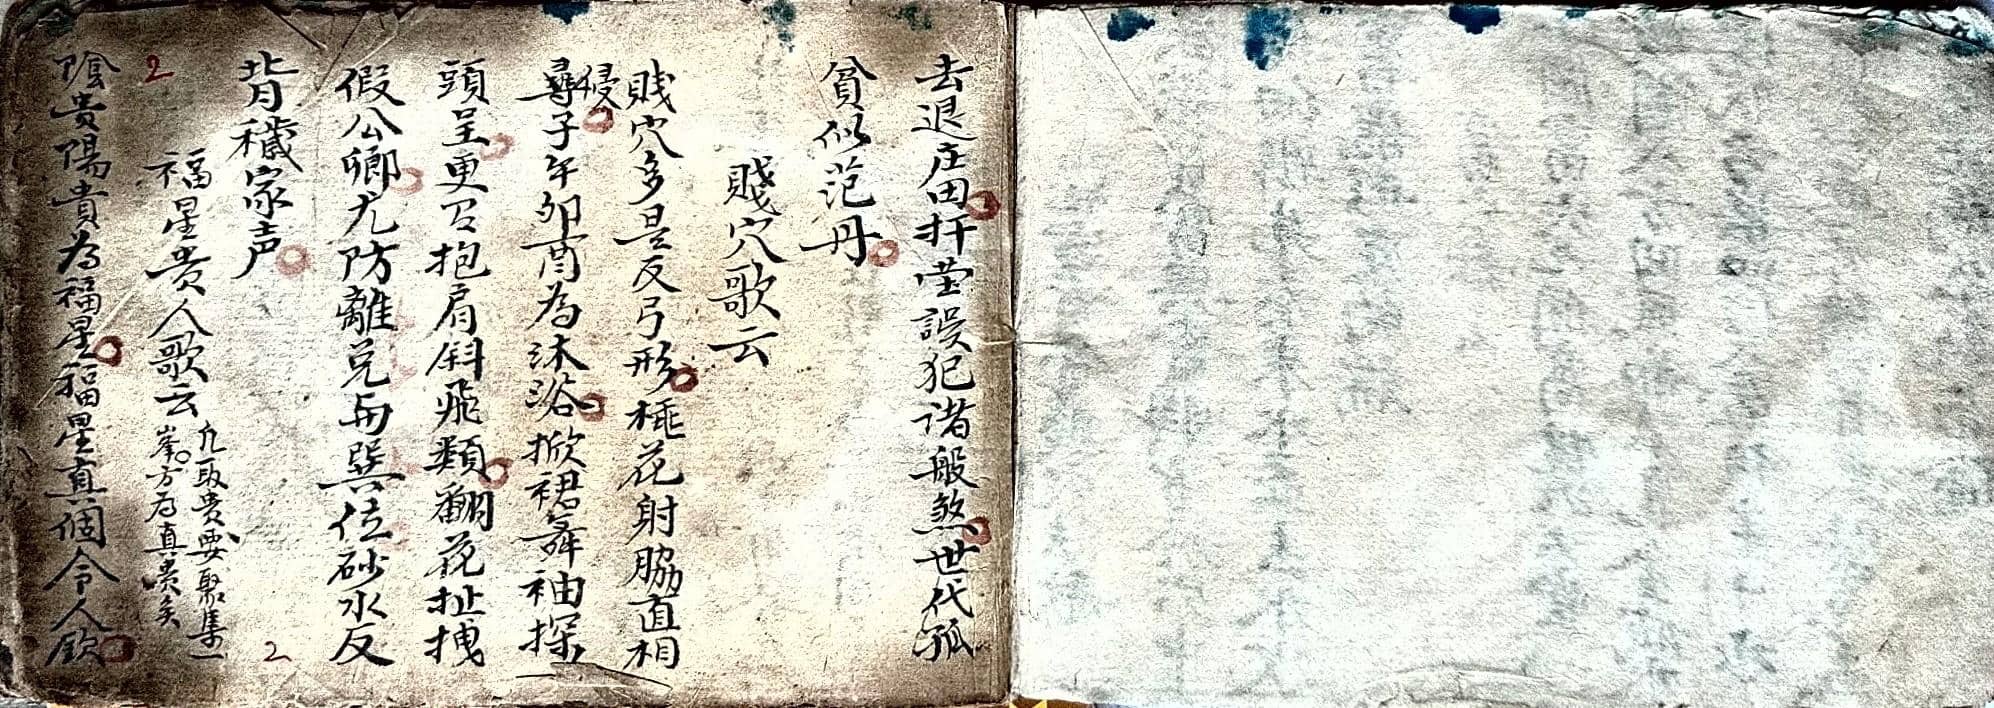 去退庄田扦塋誤犯诸般煞世代孤
貧似范丹
賤穴歌云
賎穴多是反弓形桃花射脇直相
侵
尋子午卯酉為沐浴掀裙舞袖探
頭呈更召抱肩斜飛類翻花扯拽
假公卿尤防離兑与巽位砂水反
背穢家声
福星贵人歌云
凢取贵要聚集一
峯方为真贵矣
2
2
陰貴陽貴為福星福星直個令人欽